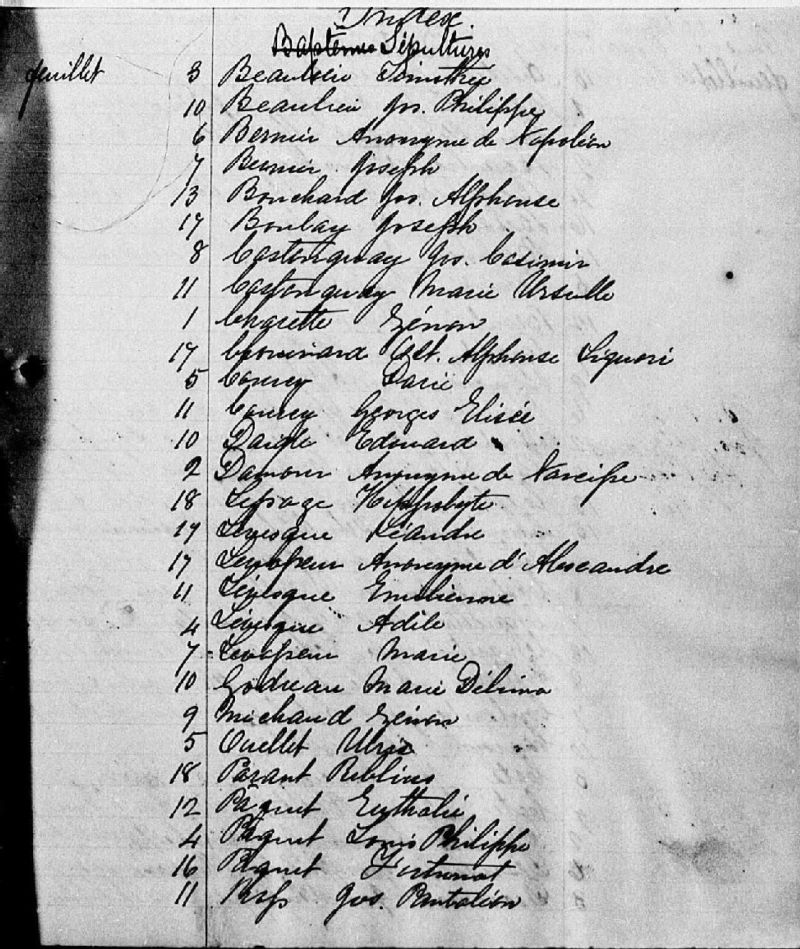 Index
Sépultures
feuillet 3 Beaulieu Timothée
10 Beaulieu Jos. Philippe
6 Bernier Anonyme de Napoléon
7 Bernier Joseph
13 Bouchard Jos. Alphonse
17 Boulay Joseph
8 Castonguay Jos. Casimir
11 Castonguay Marie Ursulle
1 Charette Zénon
17 Chouinard Alphonse Liguori
5 Courcy Darie
11 Courcy Georges Elisée
10 Daigle Edouard
2 Damour Anonyme de Narcisse
18 Lepage Hippolyte
17 Levesque Léandre
17 Levasseur Anonyme d'Alexandre
11 Lévesque Emilienne
4 Lévesque Adèle
7 Levasseur Marie
10 Godreau Marie Délima
9 Michaud Zénon
5 Ouellet
18 Parant
12 Paquet Euthalie
4 Paquet Louis Philippe
16 Paquet Fortunat
11 Ross Jos. Pantaléon